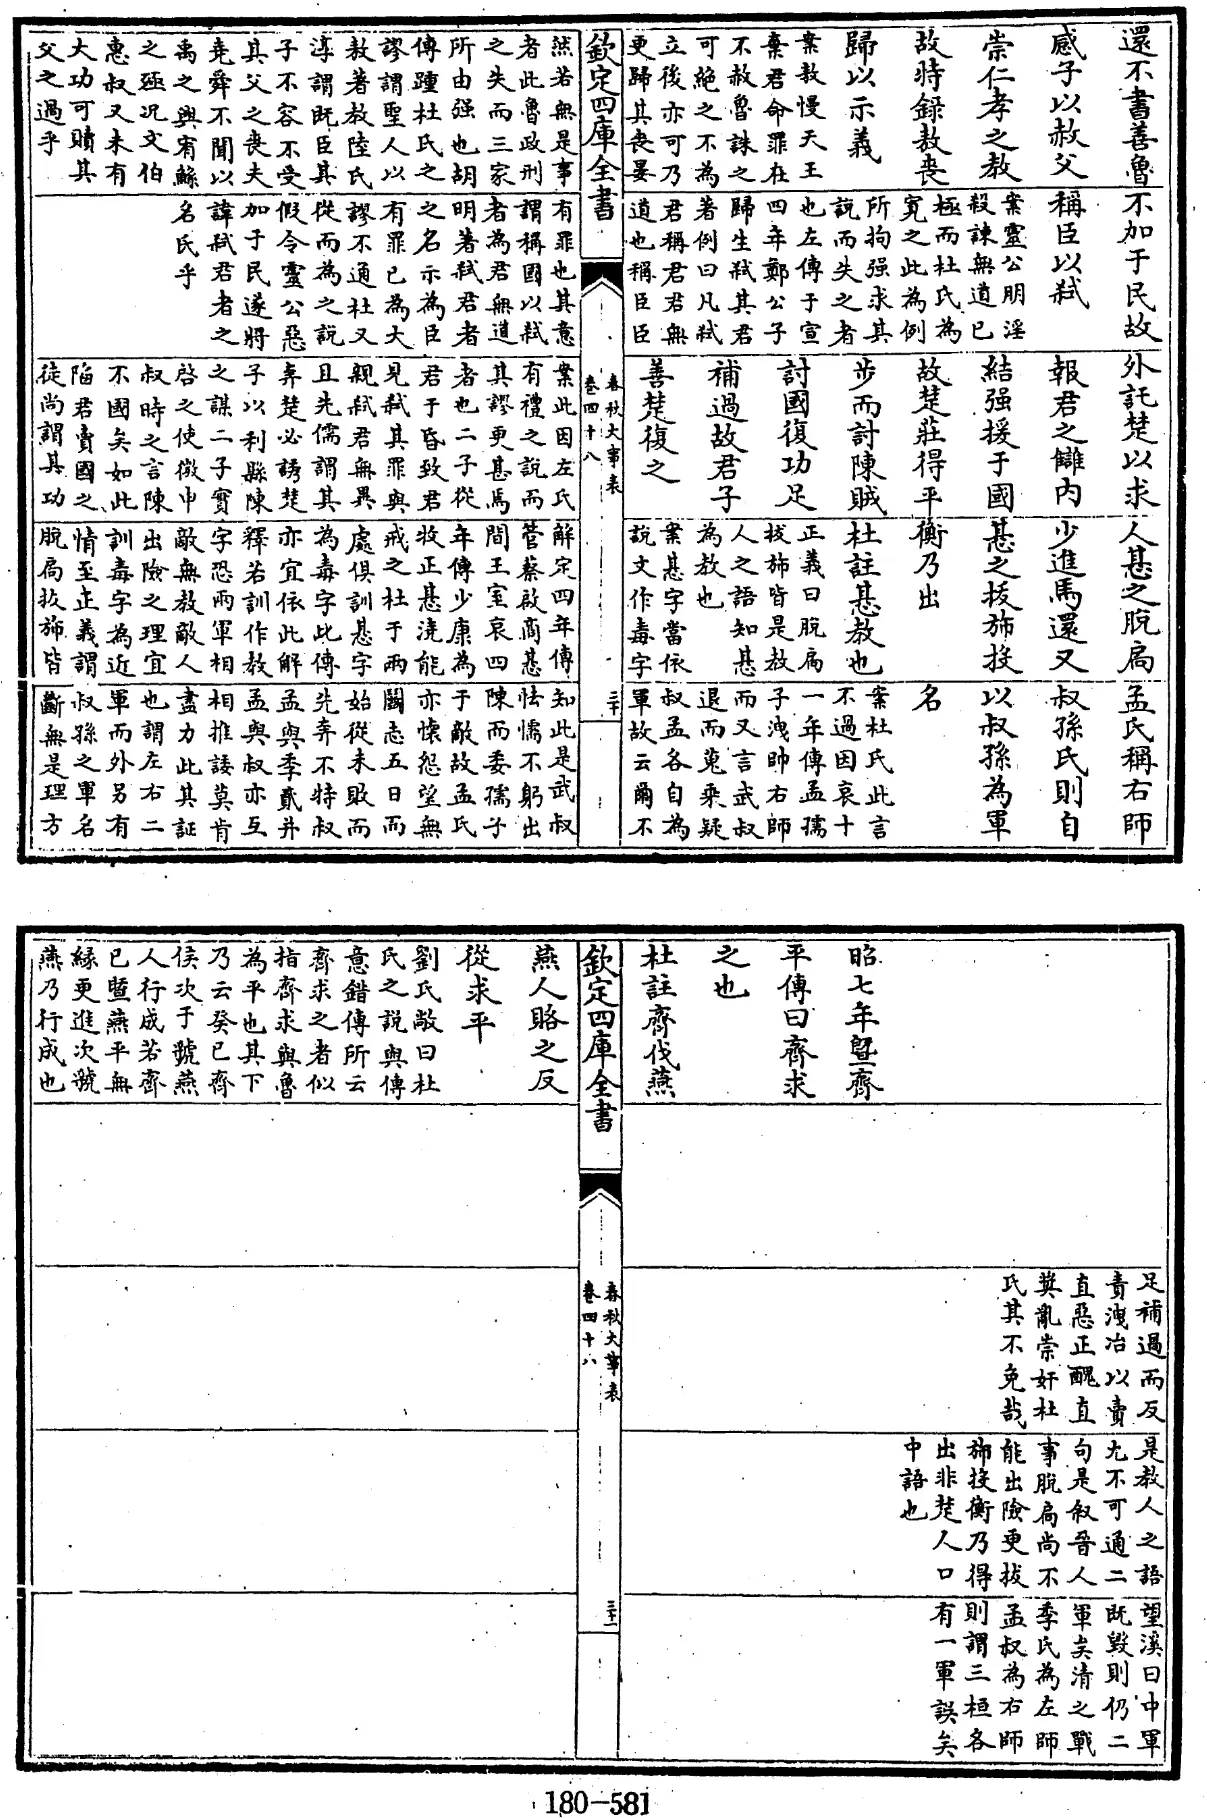 還不書善魯
感子以赦父
崇仁孝之教
故特録敖喪
歸以示義
案敖慢天王
棄君命罪在
不赦魯誅之
可絶之不為
立後亦可乃
更歸其喪晏
然若無是事
者此魯政刑
之失而三家
所由强也胡
傳踵杜氏之
謬謂聖人以
敖著教陸氏
淳謂既臣其
子不容不受
其父之喪夫
堯舜不聞以
禹之興宥鯀
之殛况文伯
惠叔又未有
大功可贖其
父之過乎
不加于民故
稱臣以弑
案靈公朋淫
殺諫無道已
極而杜氏為
寛之此為例
所拘强求其
說而失之者
也左傳于宣
四年鄭公子
歸生弑其君
著例曰凡弑
君稱君君無
道也稱臣臣
有罪也其意
謂稱國以弑
者為君無道
明著弑君者
之名示為臣
有罪已為大
謬不通杜又
從而為之說
假令靈公惡
加于民遂將
諱弑君者之
名氏乎
外託楚以求
報君之讎内
結强援于國
故楚莊得平
步而討陳賊
討國復功足
補過故君子
善楚復之
案此因左氏
有禮之說而
其謬更甚焉
者也二子從
君于昏致君
見弑其罪與
親弑君無異
且先儒謂其
奔楚必誘楚
子以利縣陳
之謀二子實
啓之使微申
叔時之言陳
不國矣如此
陷君賣國之
徒尚謂其功
人惎之脫扃
少進馬還又
惎之拔斾投
衡乃出
杜註惎教也
正義曰脫扃
拔斾皆是教
人之語知惎
為教也
案惎字當依
說文作毒字
解定四年傳
管蔡啟商惎
間王室哀四
年傳少康為
牧正惎澆能
戒之杜于兩
處俱訓惎字
為毒字此傳
亦宜依此解
釋若訓作教
字恐兩軍相
敵無教敵人
出險之理宜
訓毒字為近
情至正義謂
脫扃拔斾皆
孟氏稱右師
叔孫氏則自
以叔孫為軍
名
案杜氏此言
不過因哀十
一年傳孟孺
子洩帥右師
而又言武叔
退而蒐乘疑
叔孟各自為
軍故云爾不
知此是武叔
怯懦不躬出
陳而委孺子
于敵故孟氏
亦懷怨望無
鬭志五日而
始從未敗而
先奔不特叔
孟與季貳并
孟與叔亦互
相推諉莫肯
盡力此其証
也謂左右二
軍而外另有
叔孫之軍名
斷無是理方
欽定四庫全書
春秋大事表
卷四十八
三十
昭七年曁齊
平傳曰齊求
之也
杜註齊伐燕
燕人賂之反
從求平
劉氏敞曰杜
氏之說與傳
意錯傳所云
齊求之者似
指齊求與魯
為平也其下
乃云癸巳齊
侯次于虢燕
人行成若齊
已曁燕平無
緣更進次虢
燕乃行成也
足補過而反
責洩冶以責
直惡正醜直
奬亂崇奸杜
氏其不免哉
是教人之語
尤不可通二
句是叙晉人
事脫扃尚不
能出險更拔
斾投衡乃得
出非楚人口
中語也
望溪曰中軍
既毁則仍二
軍矣清之戰
季氏為左師
孟叔為右師
則謂三桓各
有一軍誤矣
欽定四庫全書
春秋大事表
卷四十八
三十一
180-581